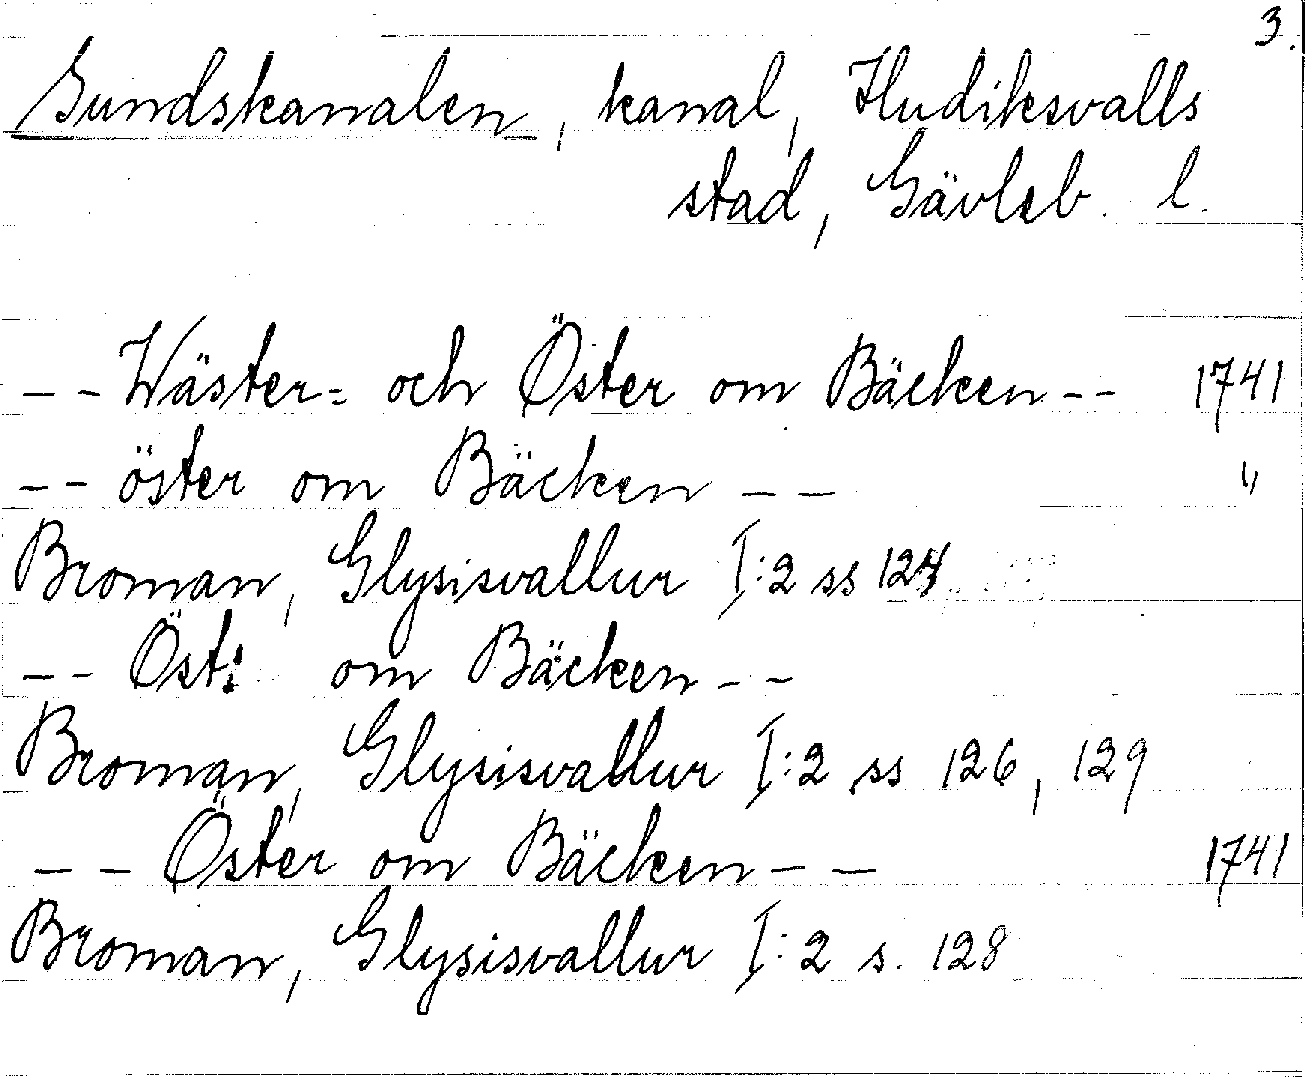 3.
Sundskanalen, kanal, Hudiksvalls
stad, Gävleb. l.
-- Wäster= och Öster om Bäcken -- 1741
-- öster om Bäcken -- "
Broman, Glysisvallur I:2 ss 124
-- Öst: om Bäcken --
Broman, Glysisvallur I:2 ss 126, 129
-- Öster om Bäcken -- 1741
Broman, Glysisvallur I:2 s. 128